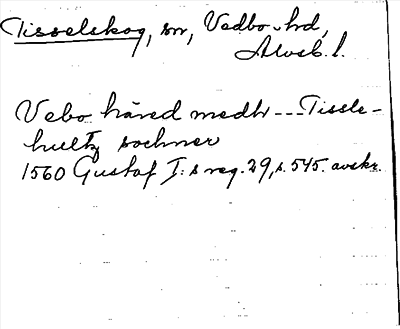 Tisselskog, sn, Vedbo hd,
Älvsb. l.
Vebo häred medh --- Tissle-
hultz sochner
1560 Gustaf I:s reg. 29, s. 545. avskr.